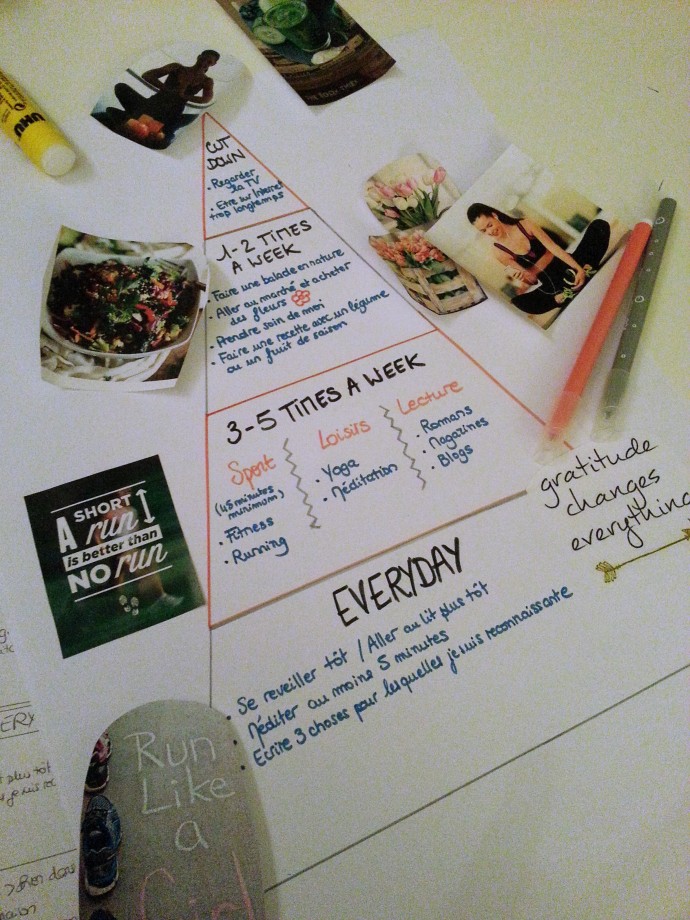 UHU
CUT
DOWN
• Regarder
la TV
• Etre sur Internet
trop longtemps
1-2 TIMES
A WEEK
• Faire une balade en nature
• Aller au marché et acheter
des fleurs
• Prendre soin de moi
• Faire une recette avec un légume
ou un fruit de saison
3-5 TIMES A WEEK
Sport
(45 minutes
minimum)
• Fitness
• Running
Loisirs
• Yoga
• Méditation
Lecture
• Romans
• Magazines
• Blogs
gratitude
changes
everything
A SHORT
run
is better than
NO run
EVERYDAY
• Se reveiller tôt / Aller au lit plus tôt
• Méditer au moins 5 minutes
• Ecrire 3 choses pour lesquelles je suis reconnaissante
Run
Like
a
Girl